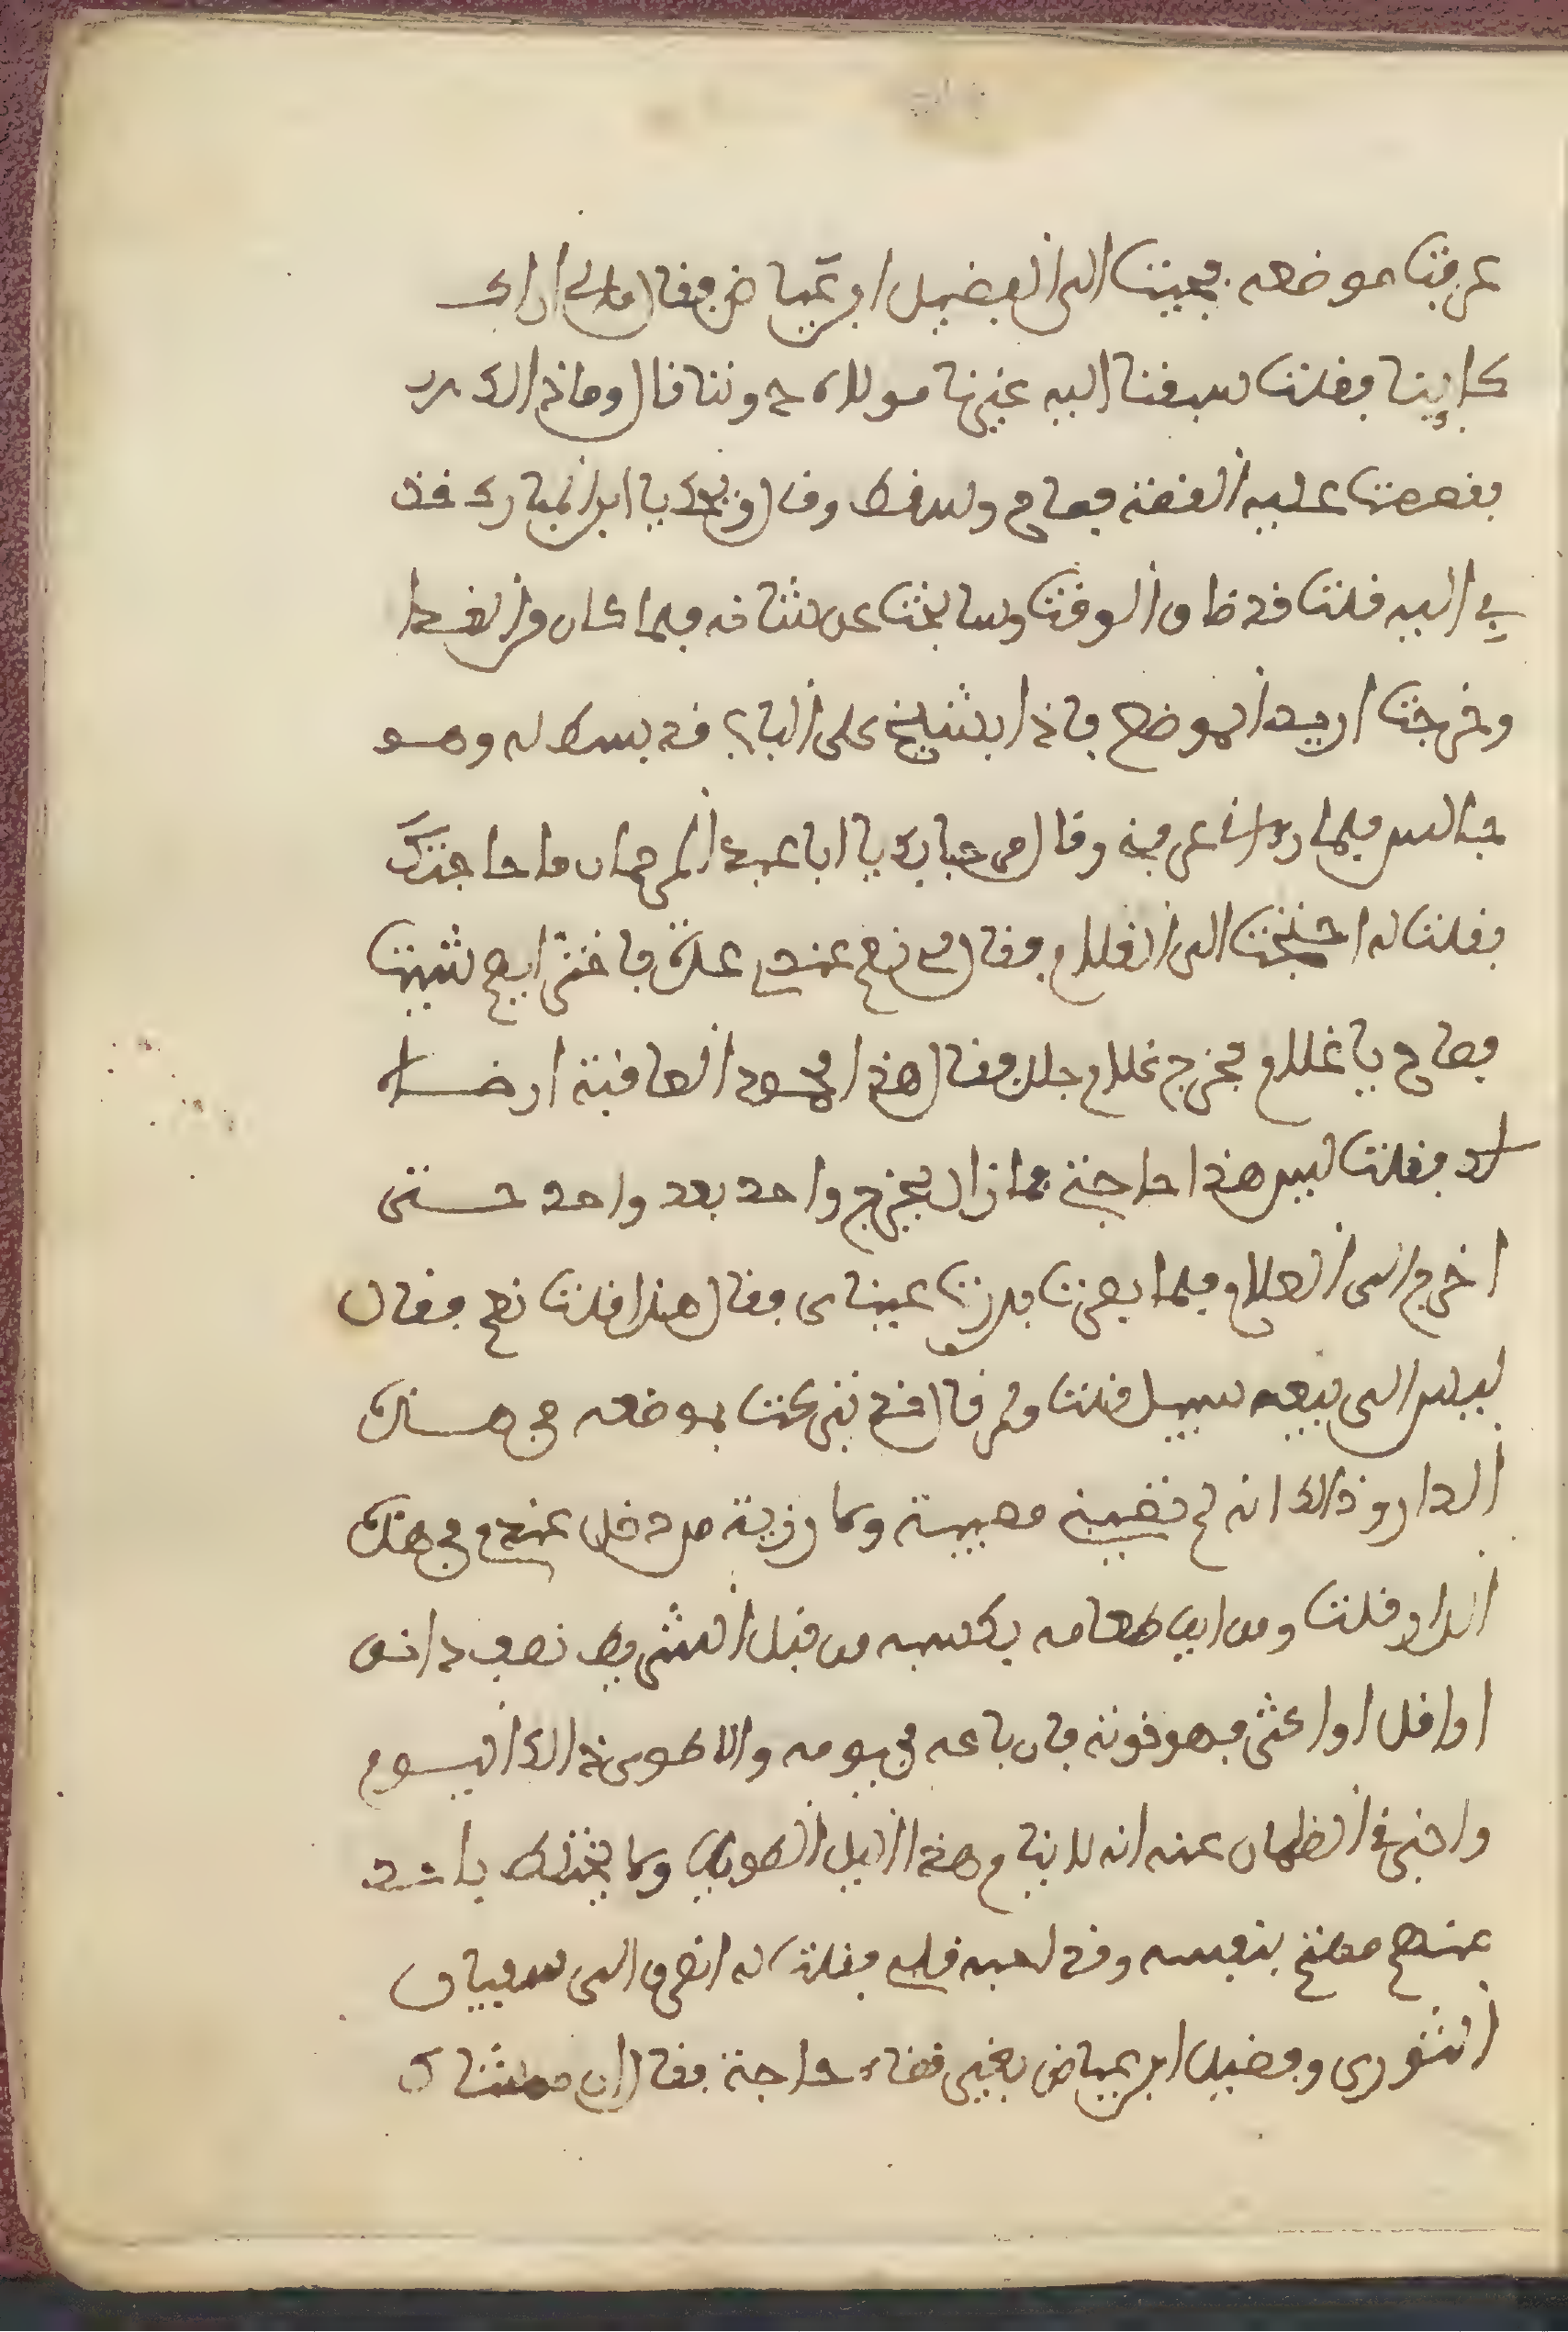 عرفت موضعه فجيت الى الفضيل ابن عياض فقال مالي اراك
كايبا فقلت سبقنا اليه غيرنا مولاه دوننا قال وما ذالك
فقصصت عليه القصة فصاح وسقط وقال ويحك يا ابن المبارك خذ
بي اليه فلت قد ضاق الوقت وسابحث عن شانه فلما كان من الغد
وخرجت اريد الموضع فاذا بشيخ على الباب قد بسط له وهو
جالس فلما رءاني عرفني وقال مرحبا بك يا ابا عبد الرحمان ما حاجتك
فقلت له احتجت الى الغلام فقال لي نعم عندي عدة فاختر ايهم شيت
فصاح يا غلام فخرج غلام جلد فقال هذا محمود العاقبة ارضاه
لك فقلت ليس هذا حاجتي فما زال يخرج واحد بعد واحد حتى
اخرج الى الغلام فلما بصرت بدرت عيناي فقال هذا قلت نعم فقال
ليس الى بيعه سبيل قلت ولم قال قد تبركت بموضعه في هذه
الدار وذالك انه لم تصيبني مصيبة ولا رزية من دخل عندي في هذه
الدار قلت ومن اين طعامه يكسبه من فتل الشريط نصف دانق
او اقل او اكثر فهو قوته فان باعه في يومه والا طوى ذالك اليوم
واخبرني الغلمان عنه انه لا ينام هذا اليل الطويل ولا يختلط باحد
منهم مهتم بنفسه وقد احبه قلبي فقلت له انصرف الى سفيان
الثوري وفضيل ابن عياض بغير قضاء حاجة فقال ان ممشاك